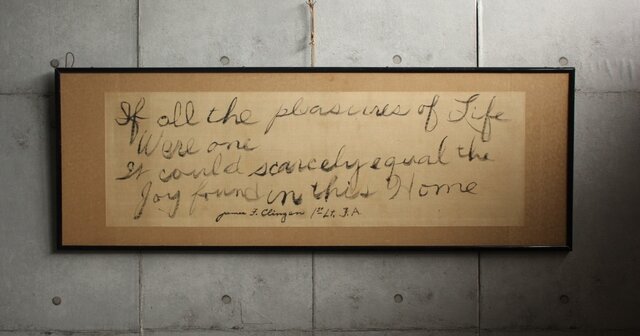 If all the pleasures of Life
Were one
It could scarcely equal the
Joy found in this Home
James F. Clingan 1st Lt. F.A.